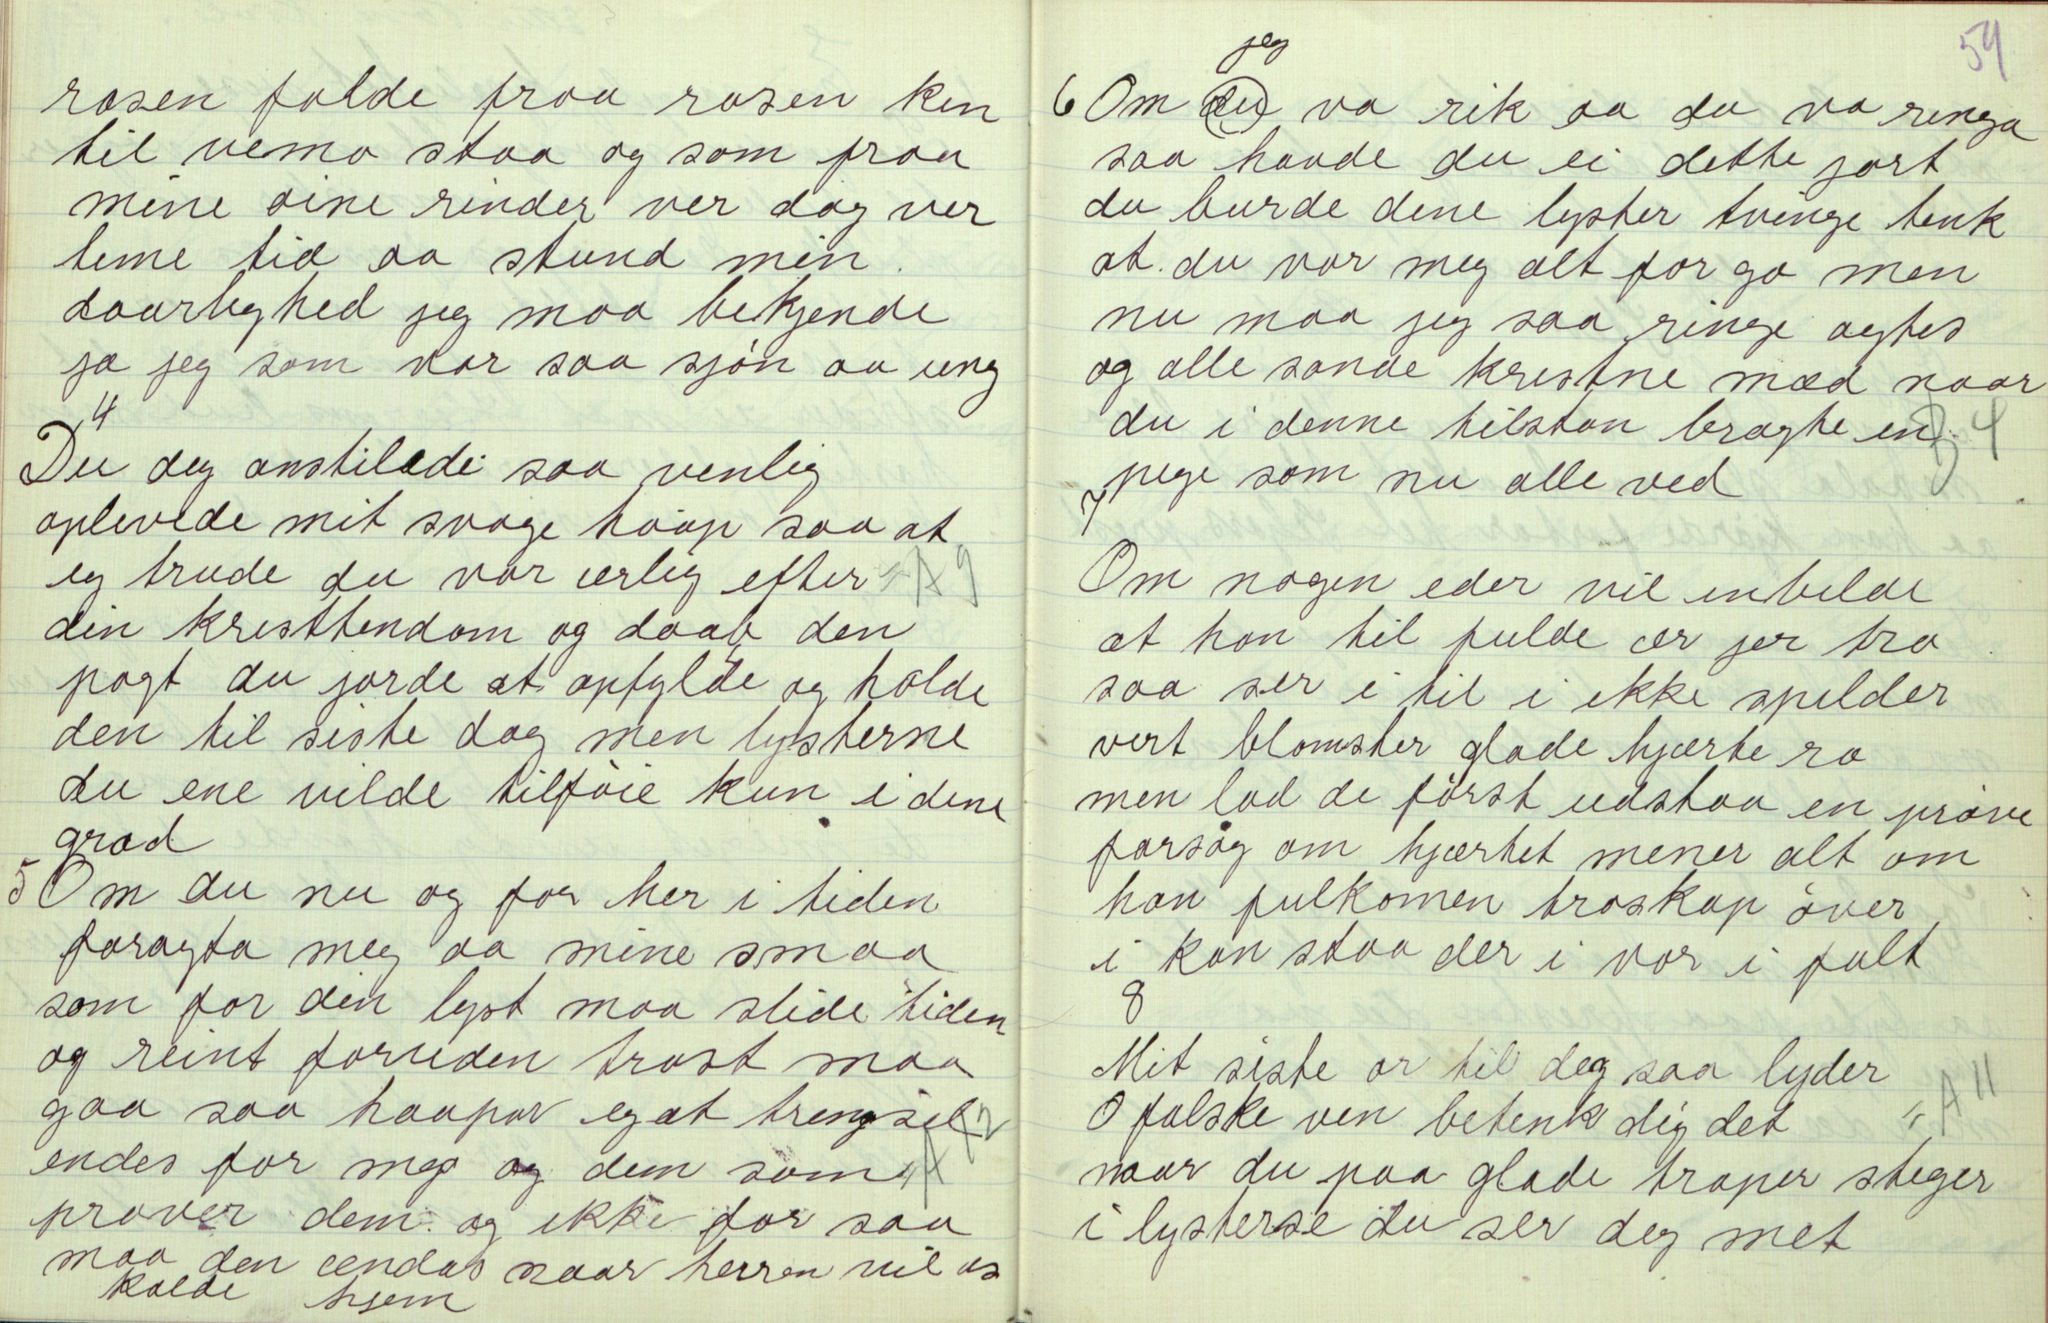 rosen folde fraa rosen ken
til vemo staa og som fraa
mine øine rinder ver dag ver
time tid aa stund min
daarlyghed jeg maa bekjende
ja jeg som var saa sjøn aa ung
4
Du deg anstilede saa venlig
oplevede mit svage haap saa at
eg trude du var ærlig efter
= A 9
din kresttendom og daab den
pagt du jorde at opfylde og holde
den til siste dag men lysterne
du ene vilde tilføie kun i dine
grad
5 Om du nu og for her i tiden
foragta meg aa mine smaa
som for din lyst maa slide tiden
og reint foruden trøst maa
gaa saa haapar eg at trengsel
endes for meg og dem som
prøver dem og ikke før saa
maa den ændas naar herren vil os
kalde hjem
54
jeg
6 Om du va rik aa du va ringa
saa havde du ei dette jort
du burde dine lyster tvinge tenk
at du var meg alt for go men
nu maa jeg saa ringe agtes
og alle sande krestne mæd naar
du i denne tilstan bragte en
B 4
pege som nu alle ved
7
Om nogen eder vil inbilde
at han til fulde ær jer tro
saa ser i til i ikke spilder
vert blomster glade hjærte ro
men lad de først udstaa en prøve
forsøg om hjærtet mener alt om
han fulkomen troskap øver
i kan staa der i var i falt
8
Mit siste or til deg saa lyder
O falske ven betenk dig det
= A 11
naar du paa glade traper steger
i lysterse du ser deg met